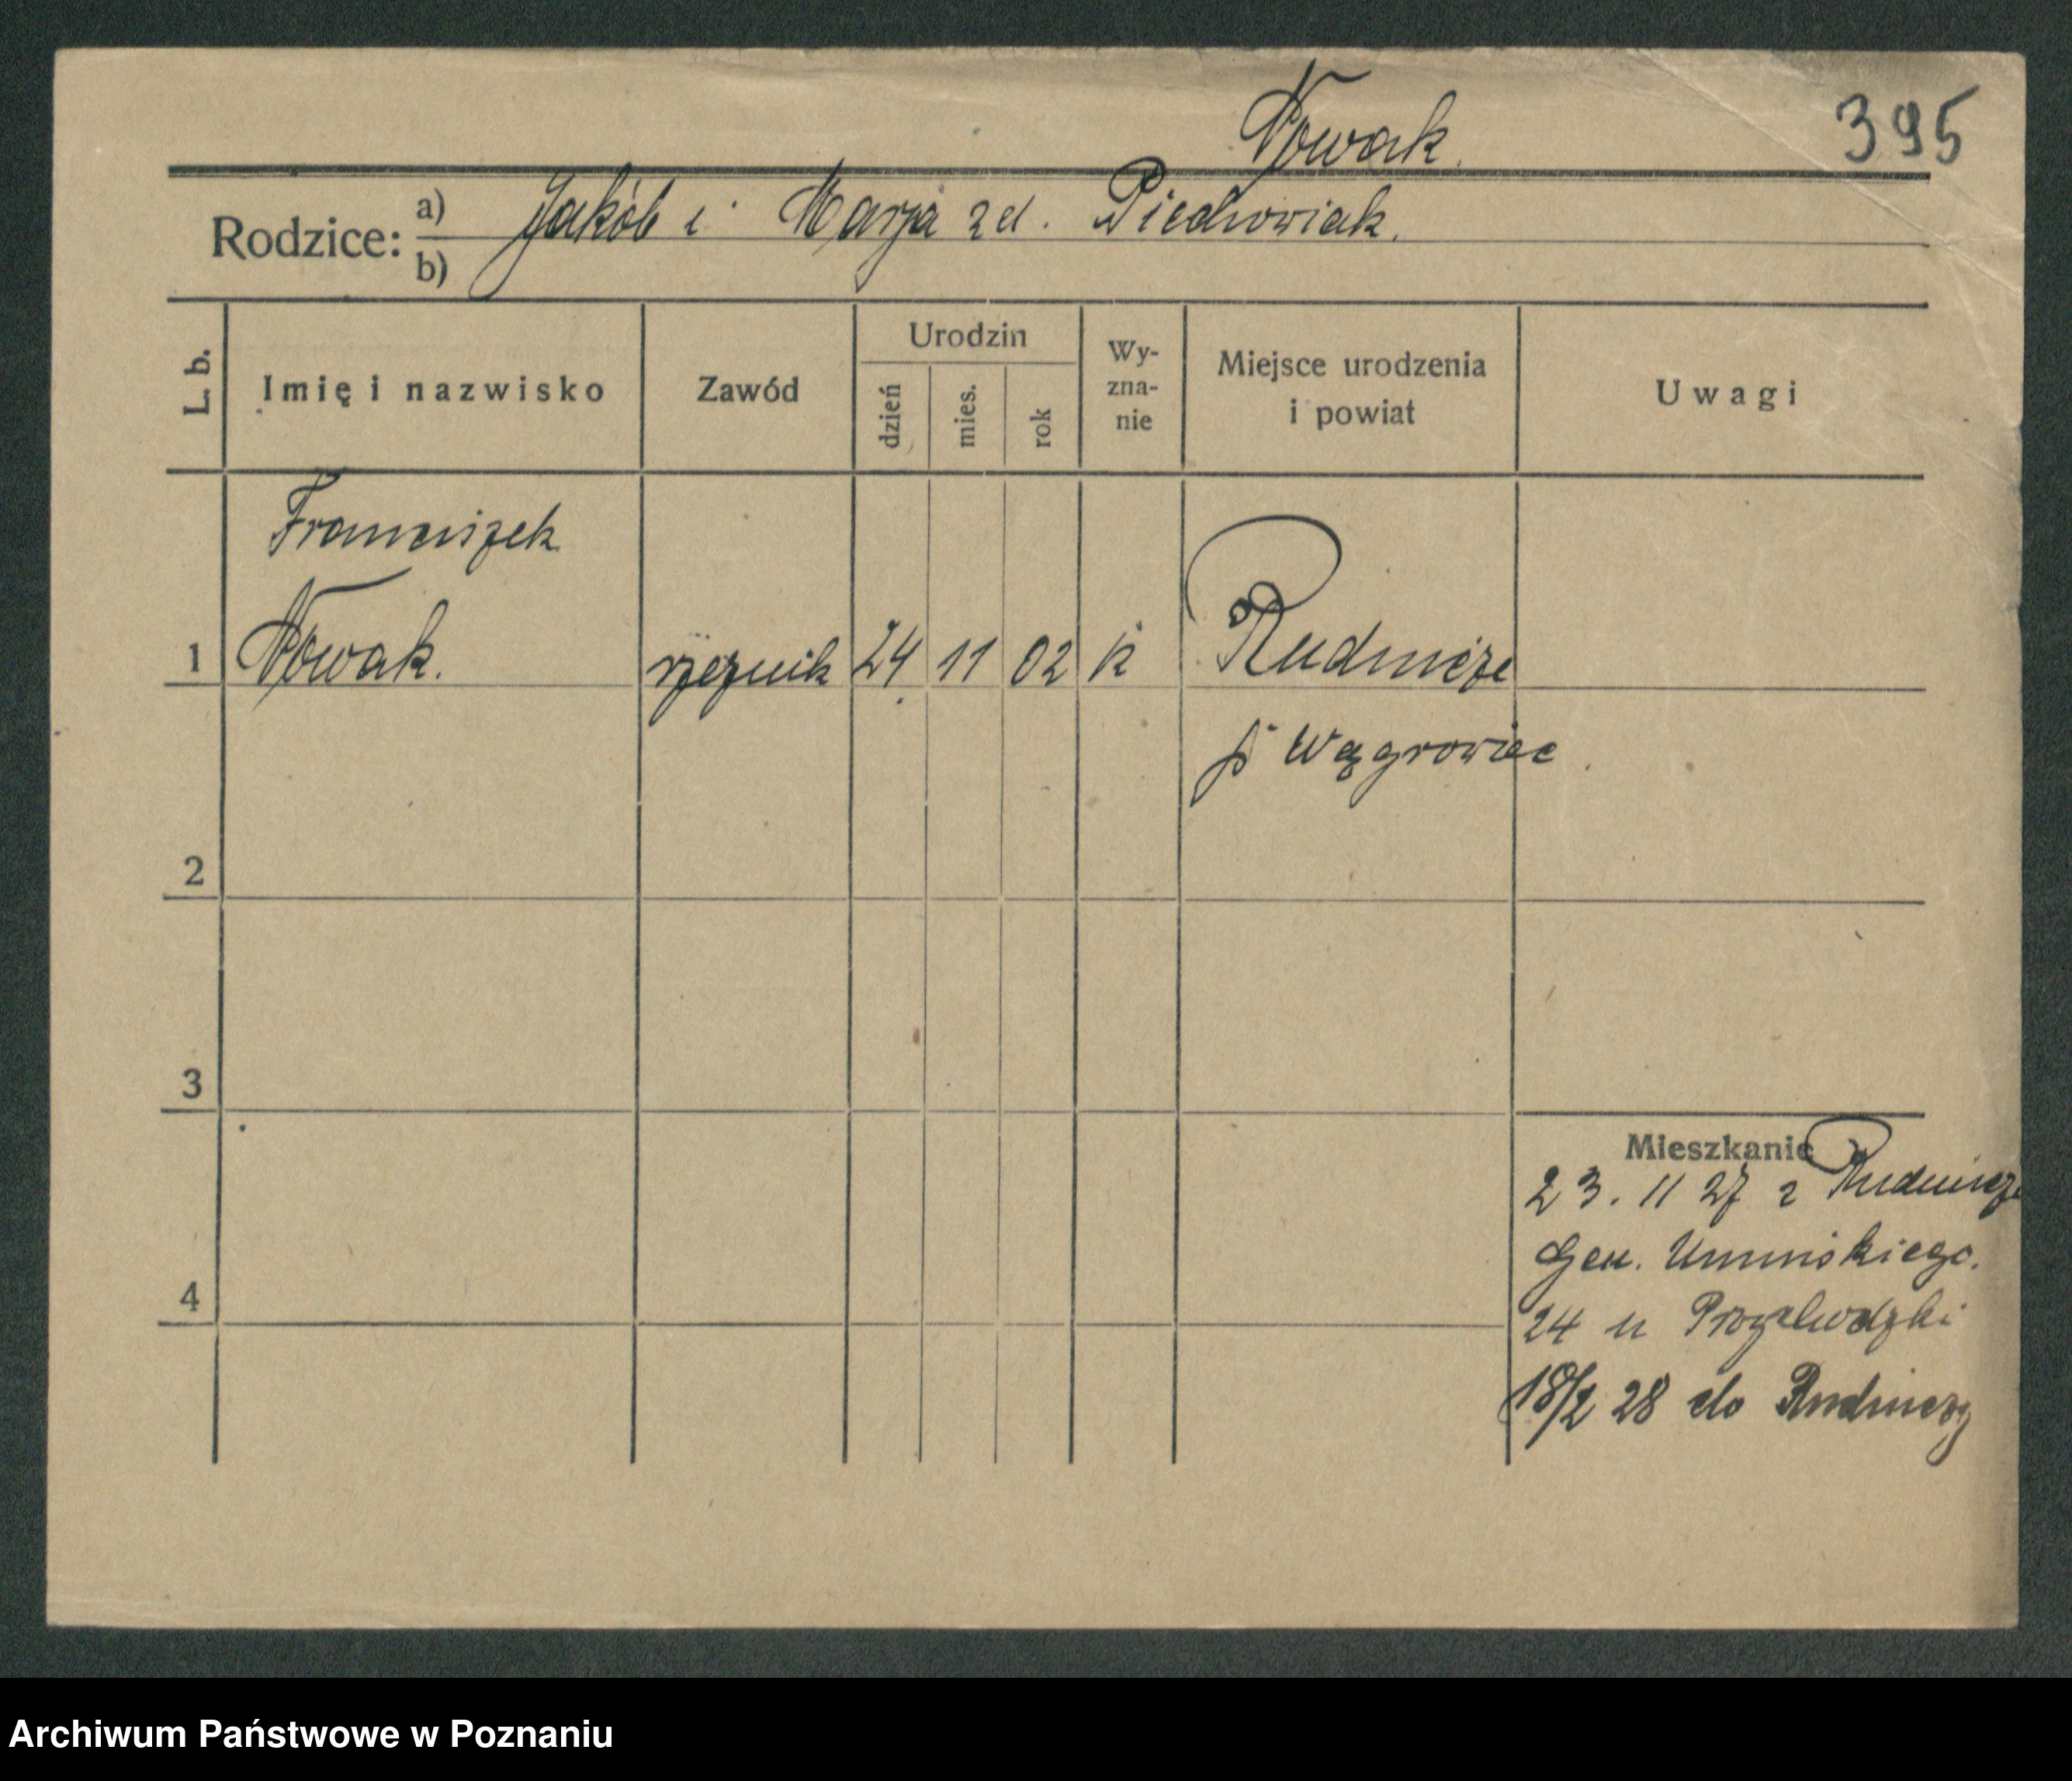 Nowak. 395
Rodzice: a) Jakób i Marja zd. Piechowiak.
b)
L. b. Imię i nazwisko Zawód Urodzin dzień mies. rok Wy-zna-nie Miejsce urodzenia i powiat Uwagi
Franciszek
1 Nowak. rzeznik 24 11 02 k Rudnicze
p Wągrowiec.
2
3
Mieszkanie
23. 11 27 z Rudnicze
Gen. Umińskiego.
4
24 u
18/2 28 do Rudniczy
Archiwum Państwowe w Poznaniu